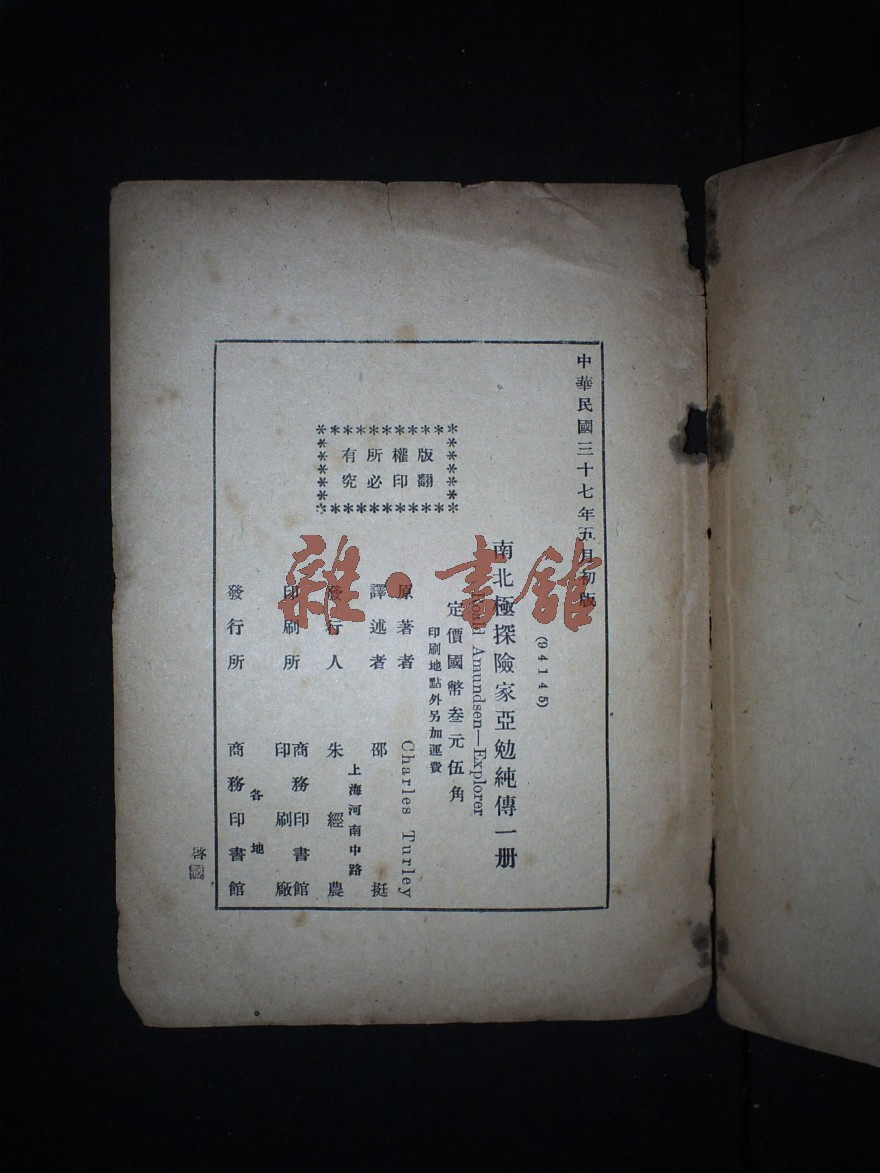 中華民國三十七年五月初版
(94145)
南北極探險家亞勉純傳一册
Roald Amundsen—Explorer
定價國幣叁元伍角
印刷地點外另加運費
版權所有
翻印必究
原著者 Charles Turley
譯述者 邵挺
上海河南中路
發行人 朱經農
印刷所 商務印書館
印刷廠
各地
發行所 商務印書館
雜·書館